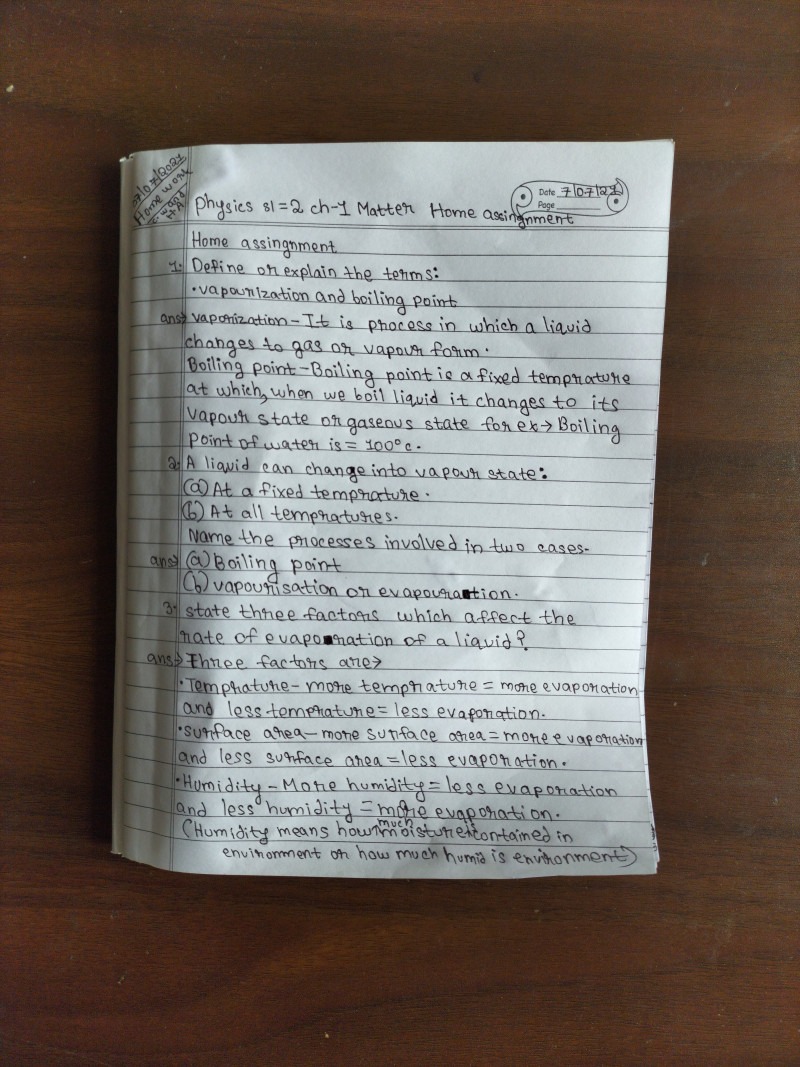 7/07/2021
Home work
H.A
Date 7/07/21
Page
Physics sl=2 ch-1 Matter Home assingnment
Home assingnment
1. Define or explain the terms:
•vapourization and boiling point
ans→ vaporization-It is process in which a liquid
changes to gas or vapour form.
Boiling point-Boiling point is a fixed temprature
at which, when we boil liquid it changes to its
vapour state or gaseous state for ex→ Boiling
point of water is = 100°c.
2. A liquid can change into vapour state:
(a) At a fixed temprature.
(b) At all tempratures.
Name the processes involved in two cases.
ans→ (a) Boiling point
(b) vapourisation or evapouration.
3. state three factors which affect the
rate of evaporation of a liquid?
ans→ Three factors are→
•Temprature-more temprature = more evaporation
and less temprature= less evaporation.
•surface area-more surface area=more evaporation
and less surface area=less evaporation.
•Humidity-More humidity=less evaporation
and less humidity = more evaporation.
(Humidity means how much moisture is contained in
environment or how much humid is environment)